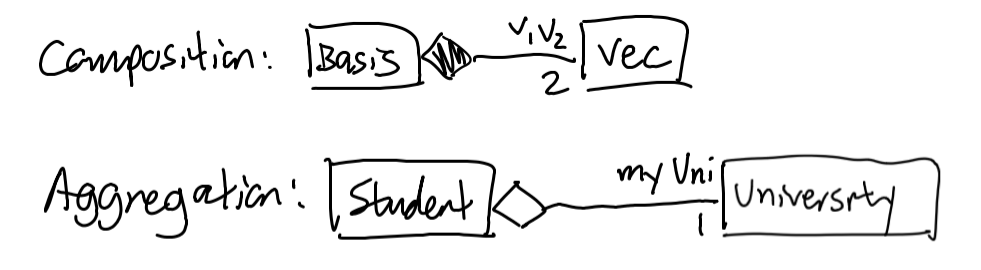 Composition: Basis v₁v₂ 2 Vec
Aggregation: Student my Uni 1 University